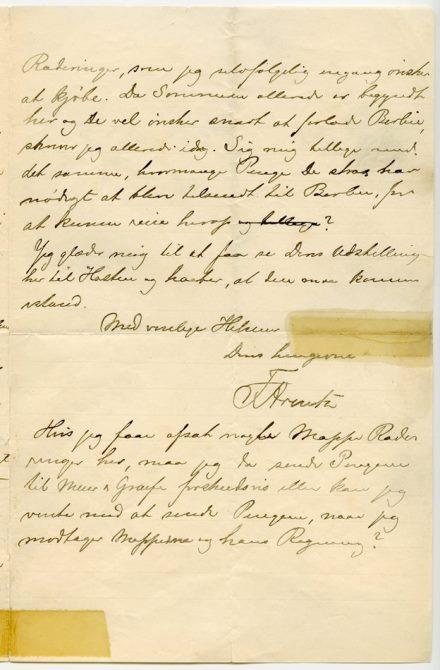 Raderinger, som jeg selvfølgelig engang ønsker
at kjøbe. Da Sommeren allerede er begyndt
her og De vel ønsker snart at forlade Berlin,
skriver jeg allerede idag. Sig mig tillige med
det samme, hvormange Penge De strax har
nødigt at blive tilsendt til Berlin, for
at kunne reise herop og tillige?
Jeg glæder mig til at faa se Deres Udstilling
her til Høsten og haaber, at den maa komme
istand.
Med venlige Hilsener
Deres hengivne
Hvis jeg faar afsat nogle Mapper Rade
ringer her, maa jeg da sende Pengene
til Meier & Graefe forskudsvis eller kan jeg
vente med at sende Pengene, naar jeg
modtager Mapperne og hans Regning?